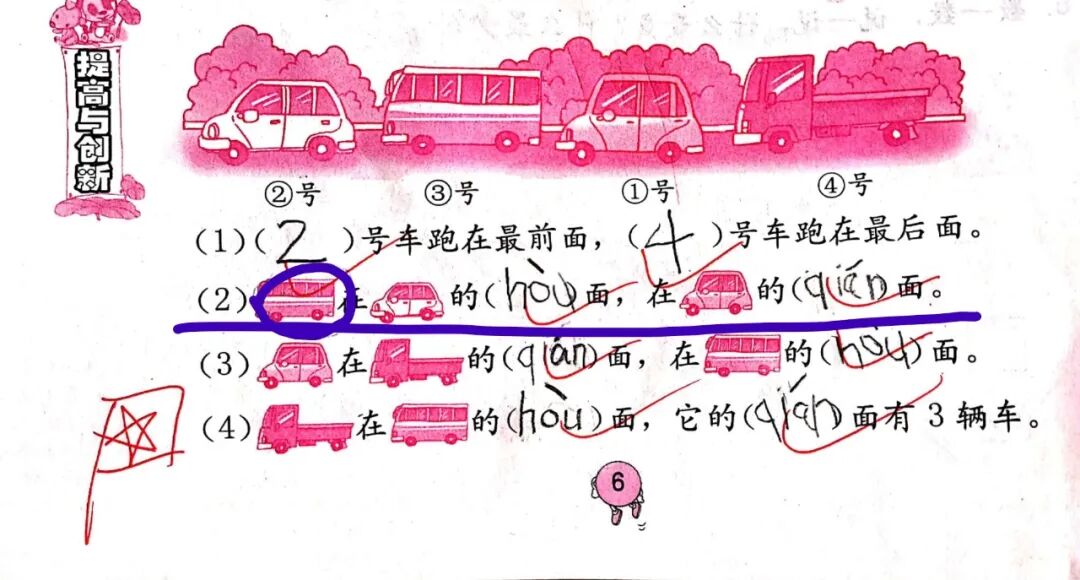 提高与创新
②号 ③号 ①号 ④号
(1)(2)号车跑在最前面,(4)号车跑在最后面。
(2)在的(hòu)面,在的(qián)面。
(3)在的(qián)面,在的(hòu)面。
(4)在的(hòu)面,它的(qián)面有3辆车。
6